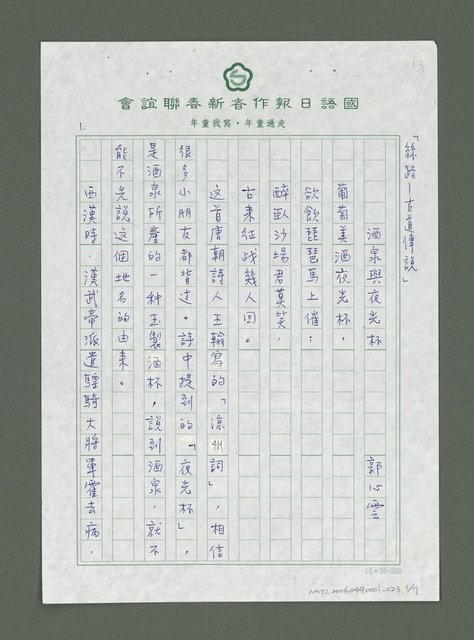 國語日報作者新春聯誼會
走過童年・寫我童年
13
1.
「絲路—古道傳說」
酒泉與夜光杯
郭心雲
葡萄美酒夜光杯，
欲飲琵琶馬上催；
醉臥沙場君莫笑，
古來征战幾人回。
这首唐朝詩人王翰寫的「涼州詞」，相信
很多小朋友都背过。詩中提到的「夜光杯」，
是酒泉所產的一种玉製酒杯，說到酒泉，就不
能不先說这個地名的由来。
西漢時，漢武帝派遣驃騎大將軍霍去病，
10×20=200
NMTL20060490001-023 1/7